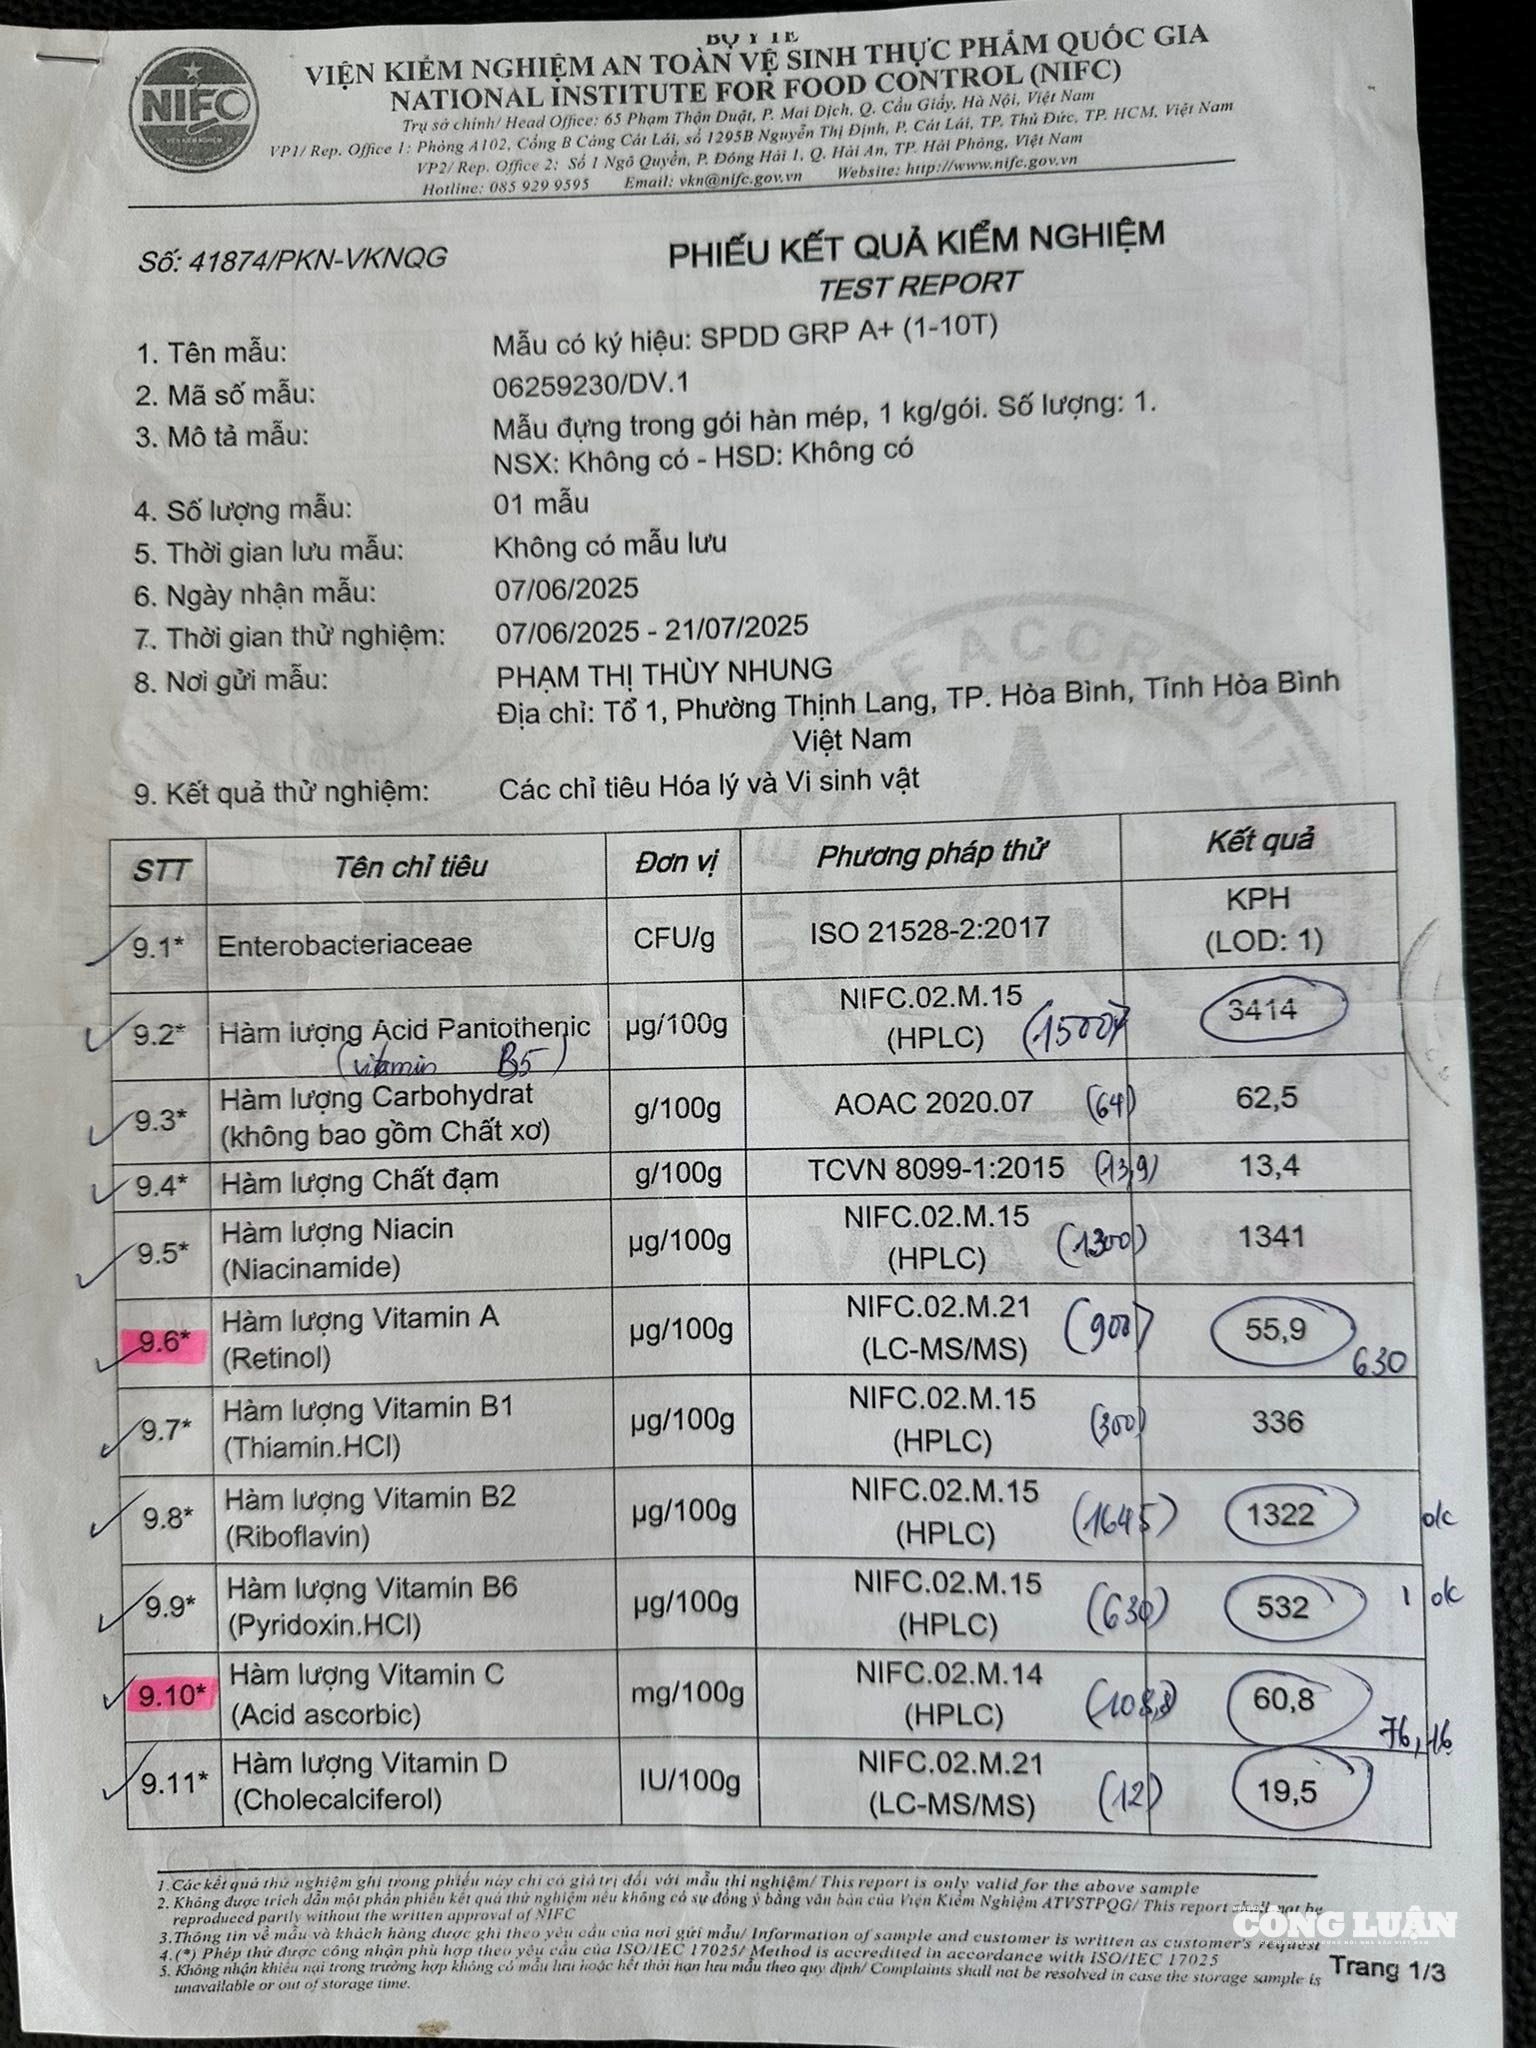 BỘ Y TẾ
VIỆN KIỂM NGHIỆM AN TOÀN VỆ SINH THỰC PHẨM QUỐC GIA
NATIONAL INSTITUTE FOR FOOD CONTROL (NIFC)
NIFC
Trụ sở chính/ Head Office: 65 Phạm Thận Duật, P. Mai Dịch, Q. Cầu Giấy, Hà Nội, Việt Nam
VP1/ Rep. Office 1: Phòng A102, Cổng B Cảng Cát Lái, số 1295B Nguyễn Thị Định, P. Cát Lái, TP. Thủ Đức, TP. HCM, Việt Nam
VP2/ Rep. Office 2: Số 1 Ngô Quyền, P. Đông Hải 1, Q. Hải An, TP. Hải Phòng, Việt Nam
Hotline: 085 929 9595 Email: vkn@nifc.gov.vn Website: http://www.nifc.gov.vn
Số: 41874/PKN-VKNQG
PHIẾU KẾT QUẢ KIỂM NGHIỆM
TEST REPORT
1. Tên mẫu: Mẫu có ký hiệu: SPDD GRP A+ (1-10T)
2. Mã số mẫu: 06259230/DV.1
3. Mô tả mẫu: Mẫu đựng trong gói hàn mép, 1 kg/gói. Số lượng: 1.
NSX: Không có - HSD: Không có
4. Số lượng mẫu: 01 mẫu
5. Thời gian lưu mẫu: Không có mẫu lưu
6. Ngày nhận mẫu: 07/06/2025
7. Thời gian thử nghiệm: 07/06/2025 - 21/07/2025
8. Nơi gửi mẫu: PHẠM THỊ THÙY NHUNG
Địa chỉ: Tổ 1, Phường Thịnh Lang, TP. Hòa Bình, Tỉnh Hòa Bình
Việt Nam
9. Kết quả thử nghiệm: Các chỉ tiêu Hóa lý và Vi sinh vật
STT Tên chỉ tiêu Đơn vị Phương pháp thử Kết quả
9.1* Enterobacteriaceae CFU/g ISO 21528-2:2017 KPH
(LOD: 1)
9.2* Hàm lượng Acid Pantothenic µg/100g NIFC.02.M.15 3414
(vitamin B5) (HPLC)
9.3* Hàm lượng Carbohydrat g/100g AOAC 2020.07 (64) 62,5
(không bao gồm Chất xơ)
9.4* Hàm lượng Chất đạm g/100g TCVN 8099-1:2015 (13,9) 13,4
9.5* Hàm lượng Niacin µg/100g NIFC.02.M.15 (1300) 1341
(Niacinamide) (HPLC)
9.6* Hàm lượng Vitamin A µg/100g NIFC.02.M.21 (900) 55,9
(Retinol) (LC-MS/MS) 630
9.7* Hàm lượng Vitamin B1 µg/100g NIFC.02.M.15 (300) 336
(Thiamin.HCl) (HPLC)
9.8* Hàm lượng Vitamin B2 µg/100g NIFC.02.M.15 (1645) 1322 ok
(Riboflavin) (HPLC)
9.9* Hàm lượng Vitamin B6 µg/100g NIFC.02.M.15 (630) 532 ok
(Pyridoxin.HCl) (HPLC)
9.10* Hàm lượng Vitamin C mg/100g NIFC.02.M.14 (108,8) 60,8
(Acid ascorbic) (HPLC) 76,16
9.11* Hàm lượng Vitamin D IU/100g NIFC.02.M.21 (12) 19,5
(Cholecalciferol) (LC-MS/MS)
1.Các kết quả thử nghiệm ghi trong phiếu này chỉ có giá trị đối với mẫu thí nghiệm/ This report is only valid for the above sample
2. Không được trích dẫn một phần phiếu kết quả thử nghiệm nếu không có sự đồng ý bằng văn bản của Viện Kiểm Nghiệm ATVSTPQG/ This report shall not be
reproduced partly without the written approval of NIFC
3.Thông tin về mẫu và khách hàng được ghi theo yêu cầu của nơi gửi mẫu/ Information of sample and customer is written as customer's request
4.(*) Phép thử được công nhận phù hợp theo yêu cầu của ISO/IEC 17025/ Method is accredited in accordance with ISO/IEC 17025
5. Không nhận khiếu nại trong trường hợp không có mẫu lưu hoặc hết thời hạn lưu mẫu theo quy định/ Complaints shall not be resolved in case the storage sample is
unavailable or out of storage time.
CÔNG LUẬN
Trang 1/3